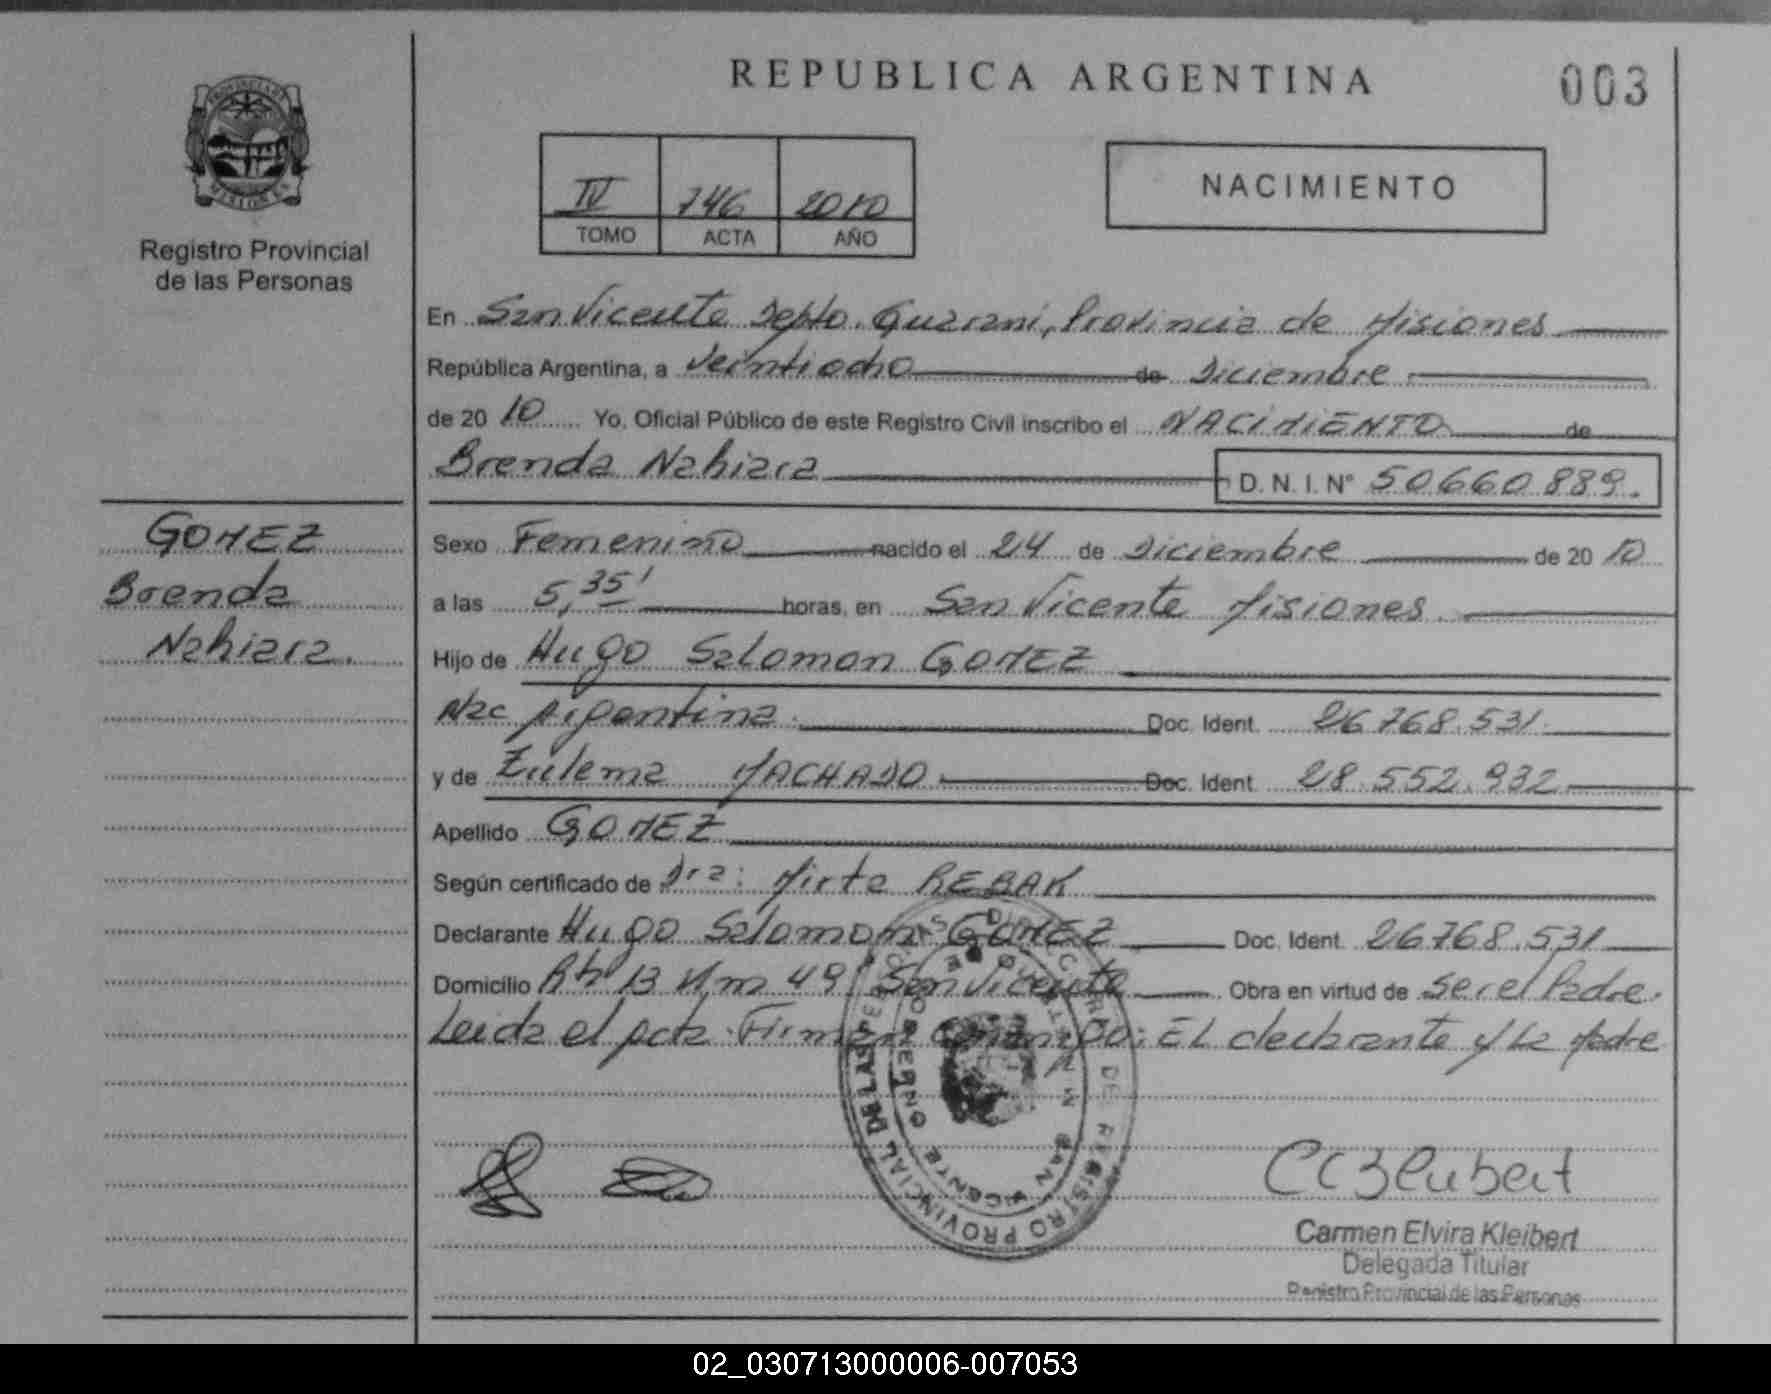 REPUBLICA ARGENTINA
003
PROVINCIA DE
MISIONES
Registro Provincial
de las Personas
IV 746 2010
TOMO ACTA AÑO
NACIMIENTO
En San Vicente Depto. Guarani, Provincia de Misiones
República Argentina, a Veintiocho de Diciembre
de 20 10 Yo, Oficial Público de este Registro Civil inscribo el NACIMIENTO de
Brenda Nahiara D.N.I. N° 50660889.
GOMEZ
Brenda
Nahiara.
Sexo Femenino nacido el 24 de Diciembre de 20 10
a las 5,35' horas, en San Vicente Misiones.
Hijo de Hugo Salomon GOMEZ
Nac Argentina. Doc. Ident. 26.768.531.
y de Zulema MACHADO Doc. Ident. 28.552.932
Apellido GOMEZ
Según certificado de Dra: Mirta REBAK
Declarante Hugo Salomon GOMEZ Doc. Ident. 26.768.531
Domicilio Rta 13 Km 49 San Vicente Obra en virtud de Ser el Padre.
Leida el acta. Firman conmigo: EL declarante y La Madre
REGISTRO PROVINCIAL DE LAS PERSONAS
SAN VICENTE
Carmen Elvira Kleibert
Delegada Titular
Registro Provincial de las Personas
02_030713000006-007053